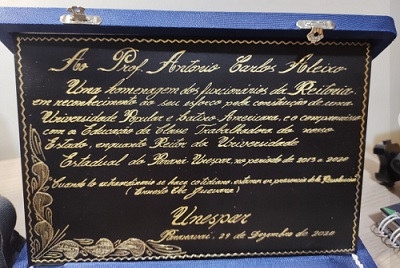 Ao Prof. Antonio Carlos Aleixo
Uma homenagem dos funcionários da Reitoria,
em reconhecimento ao seu esforço pela construção de uma
Universidade Popular e Latino Americana, e o compromisso
com a Educação da Classe Trabalhadora do nosso
Estado, enquanto Reitor da Universidade
Estadual do Paraná-Unespar, no período de 2013 a 2020
"Cuando lo extraordinario se hace cotidiano, estamos en presencia de la Revolución"
(Ernesto Che Guevara)
Unespar
Paranavaí, 29 de Dezembro de 2020